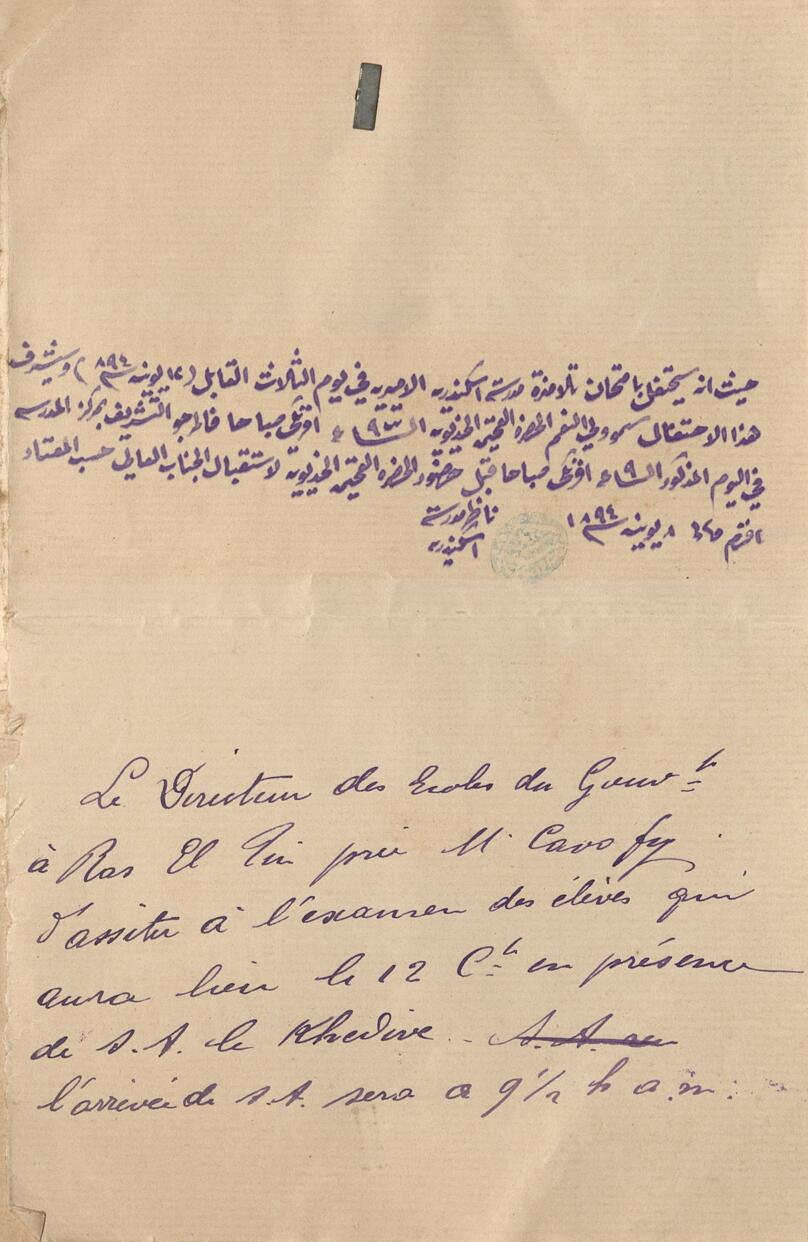 حيث انه سيحتفل بامتحان تلامذة مدرسة اسكندريه الاميريه في يوم الثلاث القابل (١٢ يونيه سنة ٨٩٤) وسيشرف
هذا الاحتفال سمو ولي النعم الحضرة الفخيمة الخديوية الساعة افرنكى صباحا فارجو التشريف بمركز المدرسه
في اليوم المذكور الساعة ٩ افرنكى صباحا قبل حضور الحضرة الفخيمة الخديوية لاستقبال الجناب العالي حسب المعتاد
افندم ٨ يونيه سنة ١٨٩٤
ناظر مدرسة
اسكندريه
Le Directeur des Ecoles du Gouv.t
à Ras El Tin prie Mr Cavafy
d'assiter à l'examen des élèves qui
aura lieu le 12 Ct en présence
de S.A. le Khedive. S.A.
l'arrivée de S.A. sera a 9 1/2 h a.m.